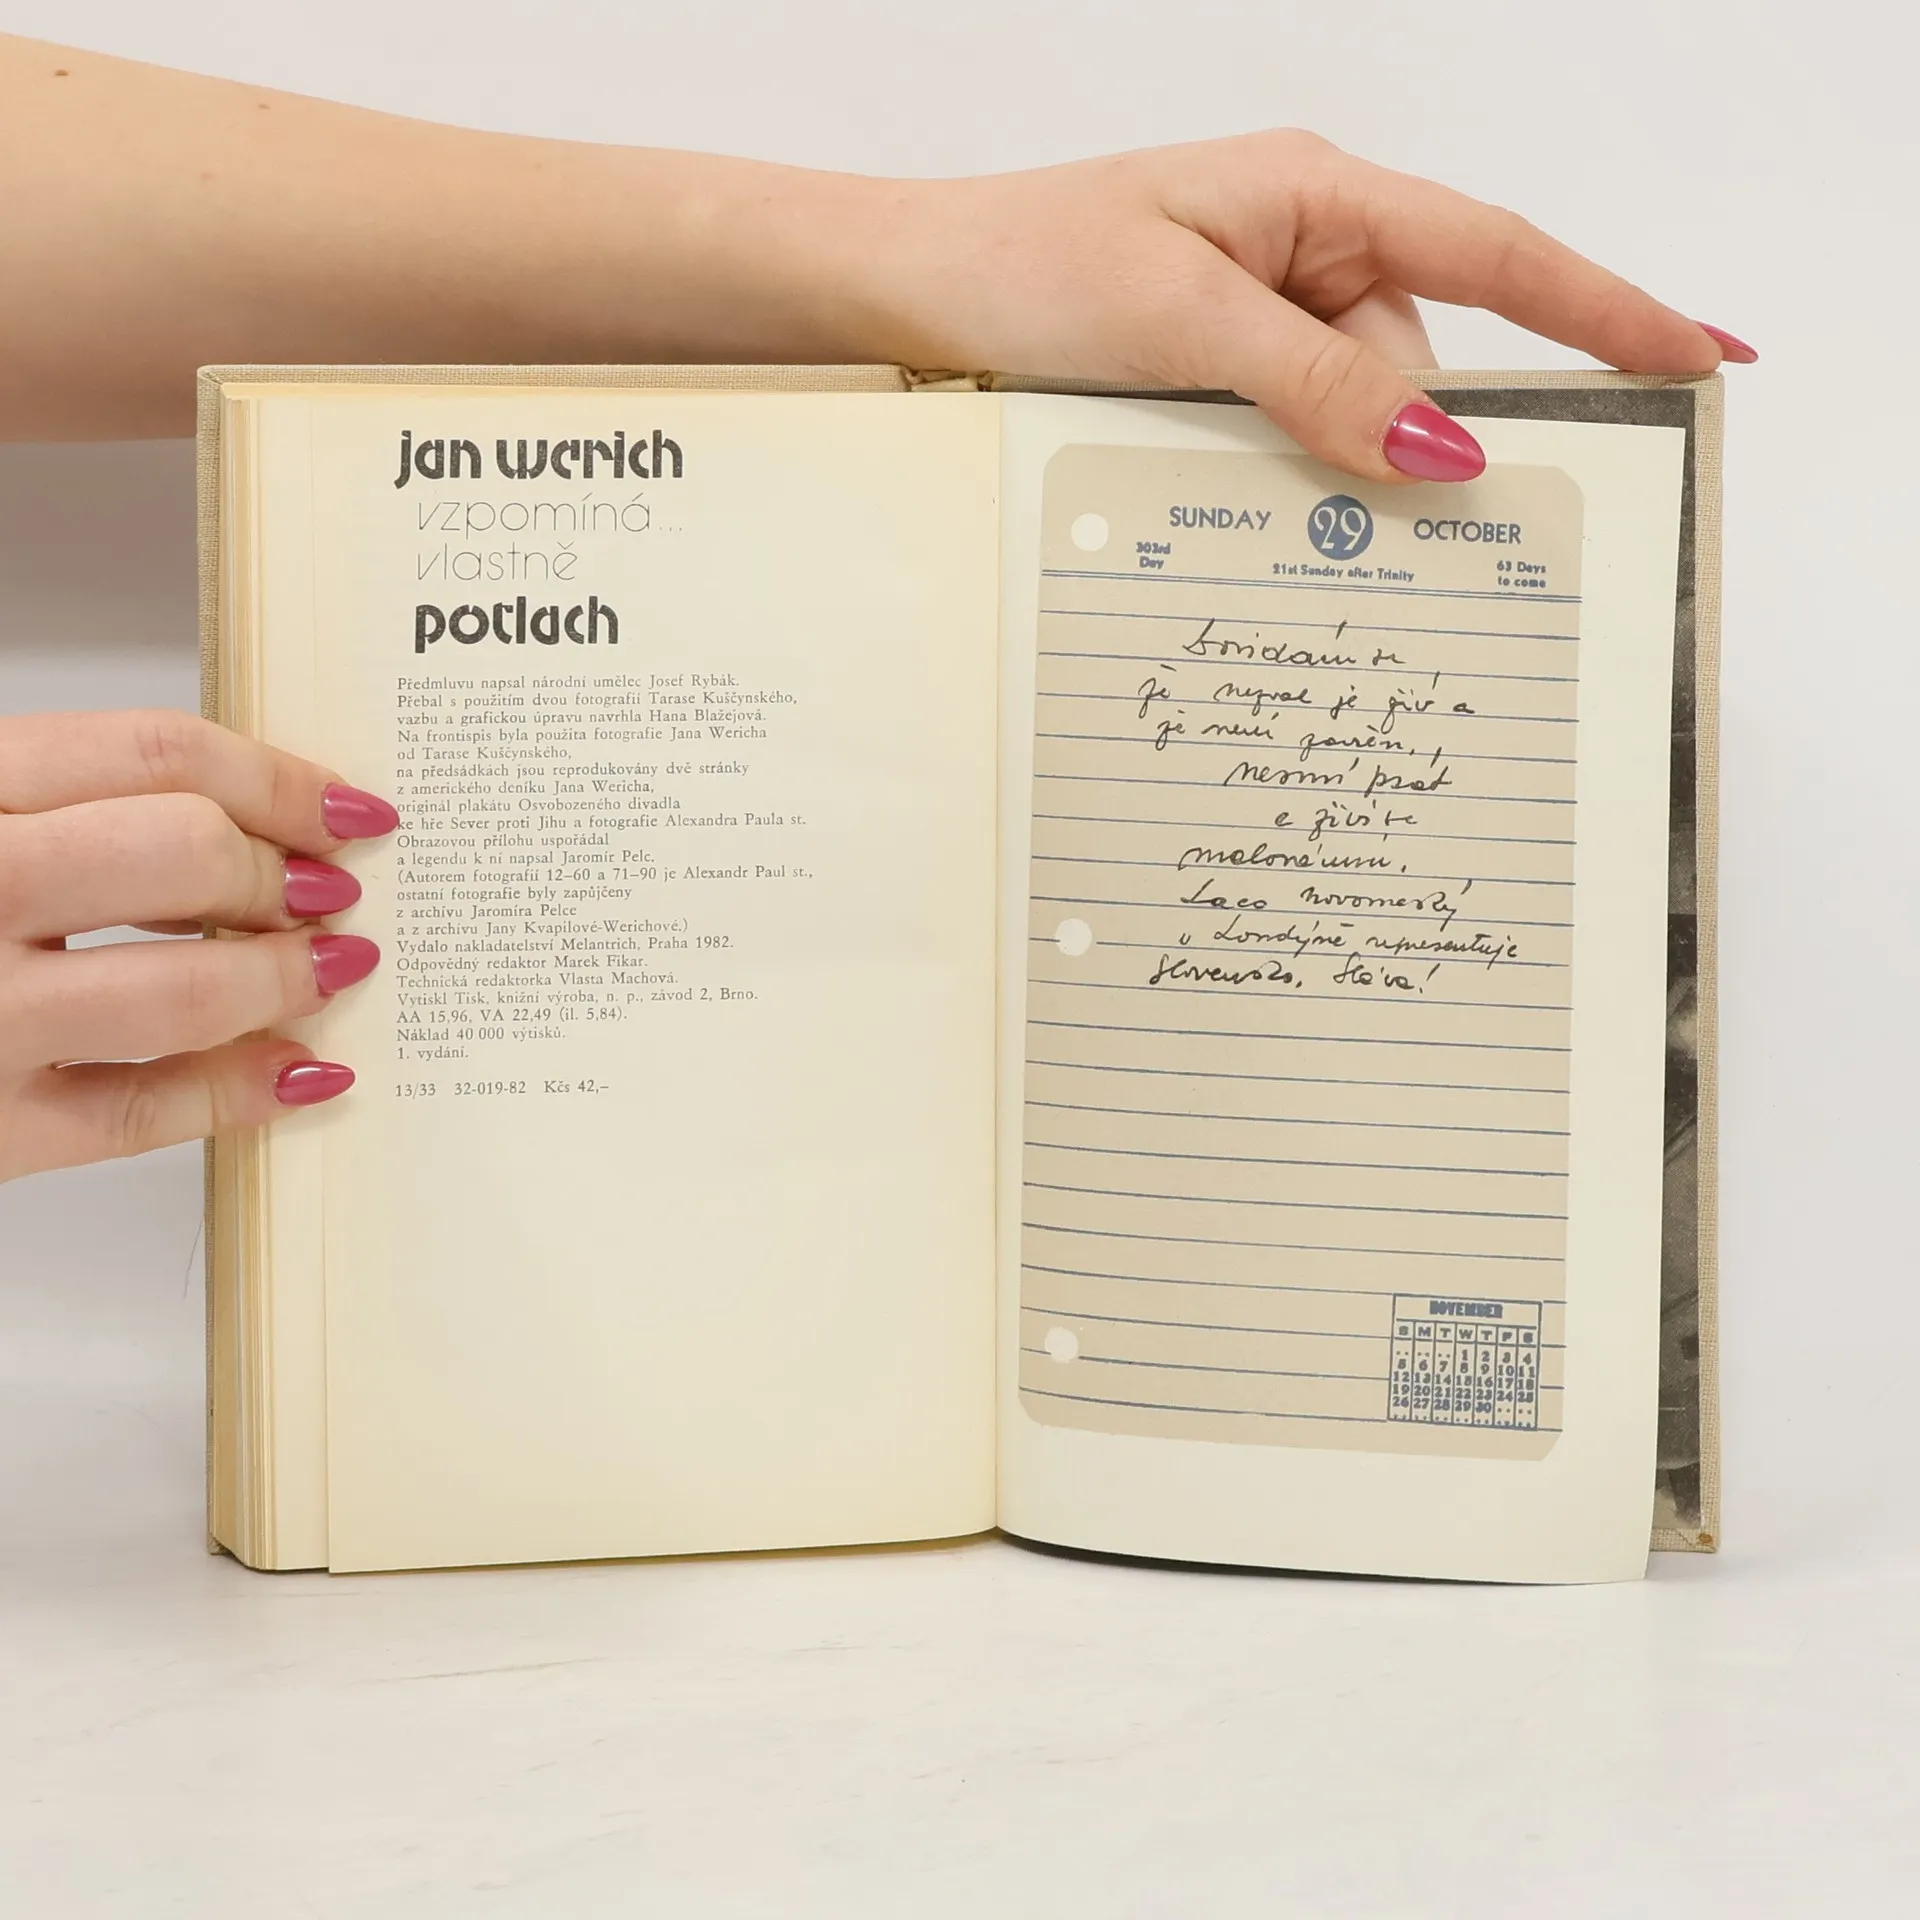 jan werich
vzpomíná...
vlastně
potlach
Předmluvu napsal národní umělec Josef Rybák.
Přebal s použitím dvou fotografií Tarase Kuščynského,
vazbu a grafickou úpravu navrhla Hana Blažejová.
Na frontispis byla použita fotografie Jana Wericha
od Tarase Kuščynského,
na předsádkách jsou reprodukovány dvě stránky
z amerického deníku Jana Wericha,
originál plakátu Osvobozeného divadla
ke hře Sever proti Jihu a fotografie Alexandra Paula st.
Obrazovou přílohu uspořádal
a legendu k ní napsal Jaromír Pelc.
(Autorem fotografií 12–60 a 71–90 je Alexandr Paul st.,
ostatní fotografie byly zapůjčeny
z archívu Jaromíra Pelce
a z archívu Jany Kvapilové-Werichové.)
Vydalo nakladatelství Melantrich, Praha 1982.
Odpovědný redaktor Marek Fikar.
Technická redaktorka Vlasta Machová.
Vytiskl Tisk, knižní výroba, n. p., závod 2, Brno.
AA 15,96, VA 22,49 (il. 5,84).
Náklad 40 000 výtisků.
1. vydání.
13/33 32-019-82 Kčs 42,–
SUNDAY 29 OCTOBER
303rd Day 21st Sunday after Trinity 63 Days to come
Dovídám se
že Nezval je živ a
že není zavřen,
nesmí psát
a živí se
malováním.
Laco Novomeský
v Londýně representuje
Slovensko. Sláva!
NOVEMBER
S M T W T F S
.. .. .. 1 2 3 4
5 6 7 8 9 10 11
12 13 14 15 16 17 18
19 20 21 22 23 24 25
26 27 28 29 30 .. ..